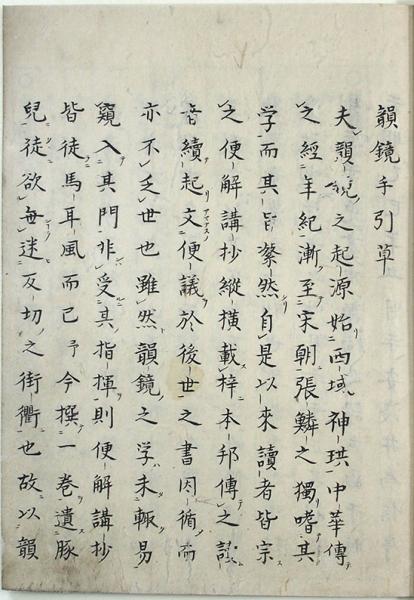 韻鏡手引草
夫韻鏡之起源始西域神珙中華傳
之經年紀漸至宋朝張鱗之獨嗜其
学而其旨粲然自是以來讀者皆宗
之便解講抄縱横載梓本邦傳之
續起文便議於後世之書因循而
亦不乏世也雖然韻鏡之学未輙易
窺入其門非受其指揮則便解講抄
皆徒馬耳風而已予今撰一卷遺豚
兒徒欲毋迷反切之街衢也故以韻